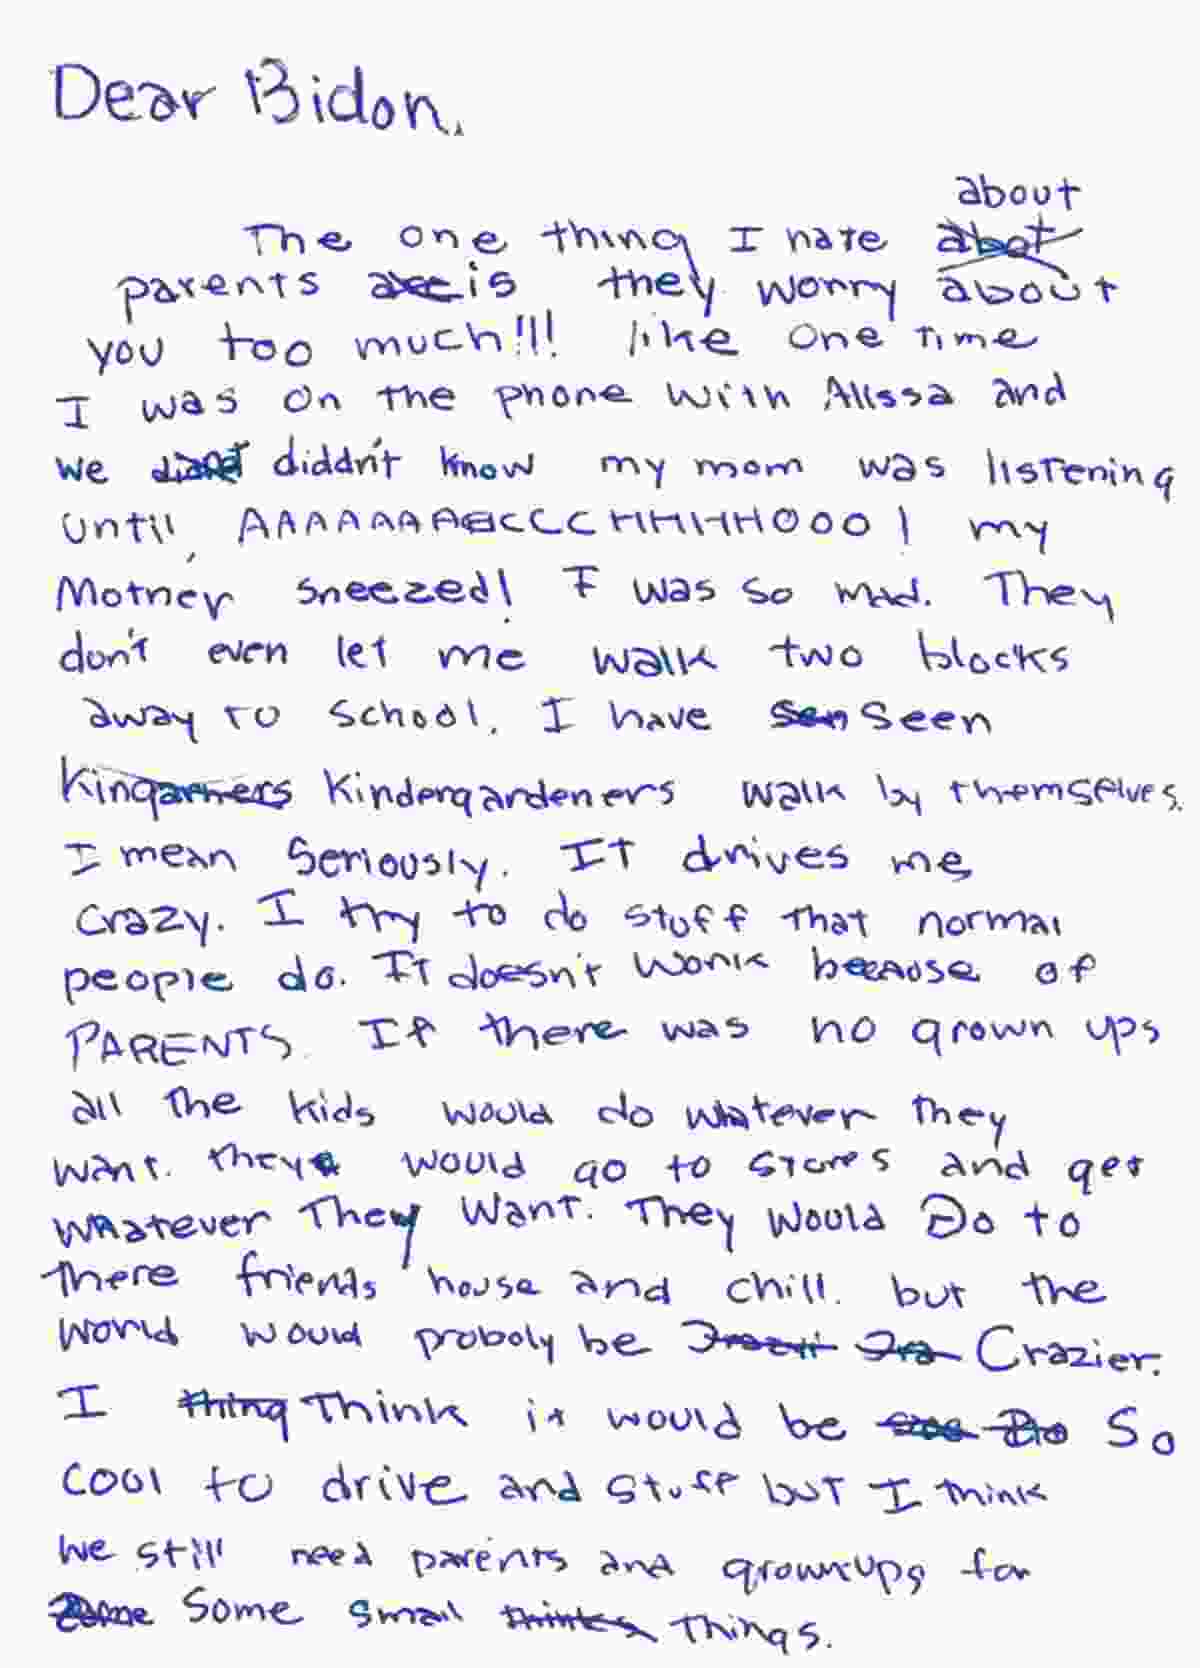 Dear Bidon.
about
The one thing I hate abot
parents are is they worry about
you too much!!! like one time
I was on the phone with Alissa and
we didnt diddn't know my mom was listening
until, AAAAAAAACCCCHHHHOOO! my
Mother sneezed! I was so mad. They
don't even let me walk two blocks
away to school. I have sen seen
Kingarners Kindergardeners walk by themselves.
I mean Seriously. It drives me
crazy. I try to do stuff that normal
people do. It doesn't work because of
PARENTS. If there was no grown ups
all the kids would do whatever they
want. they would go to stores and get
whatever They want. They would Do to
there friends house and chill. but the
world would proboly be Crazier.
I thing Think it would be So
cool to drive and stuff but I think
we still need parents and grownups for
Some small thinks Things.